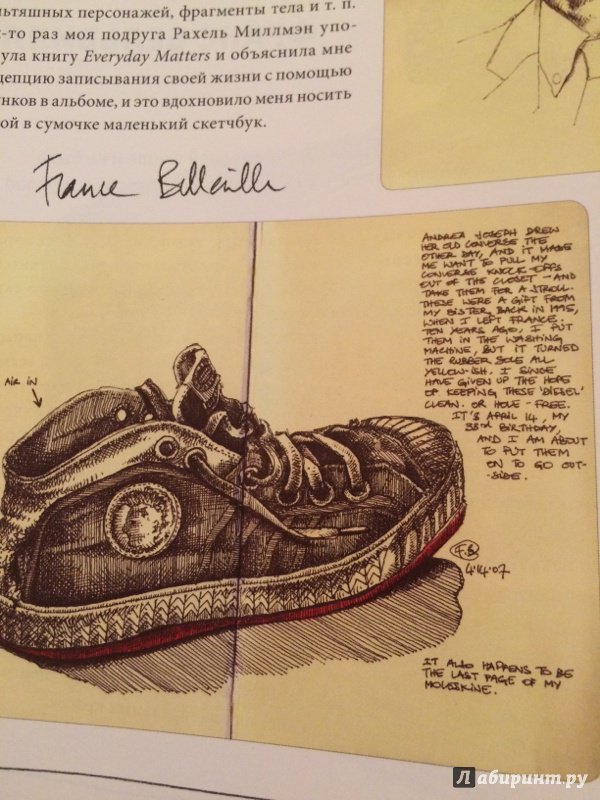 льтяшных персонажей, фрагменты тела и т. п.
-то раз моя подруга Рахель Миллмэн упо-
нула книгу Everyday Matters и объяснила мне
цепцию записывания своей жизни с помощью
унков в альбоме, и это вдохновило меня носить
ой в сумочке маленький скетчбук.
France Belleville
ANDREA JOSEPH DREW
HER OLD CONVERSE THE
OTHER DAY, AND IT MADE
ME WANT TO PULL MY
CONVERSE KNOCK-OFFS
OUT OF THE CLOSET - AND
TAKE THEM FOR A STROLL.
THESE WERE A GIFT FROM
MY SISTER BACK IN 1995,
WHEN I LEFT FRANCE.
TEN YEARS AGO, I PUT
THEM IN THE WASHING
MACHINE, BUT IT TURNED
THE RUBBER SOLE ALL
YELLOW-ISH. I SINCE
HAVE GIVEN UP THE HOPE
OF KEEPING THESE 'DIESEL'
CLEAN. OR HOLE-FREE.
IT'S APRIL 14, MY
38rd BIRTHDAY,
AND I AM ABOUT
TO PUT THEM
ON TO GO OUT-
-SIDE.
AIR IN
F.B.
4'14'07
IT ALSO HAPPENS TO BE
THE LAST PAGE OF MY
MOLESKINE.
Лабиринт.ру